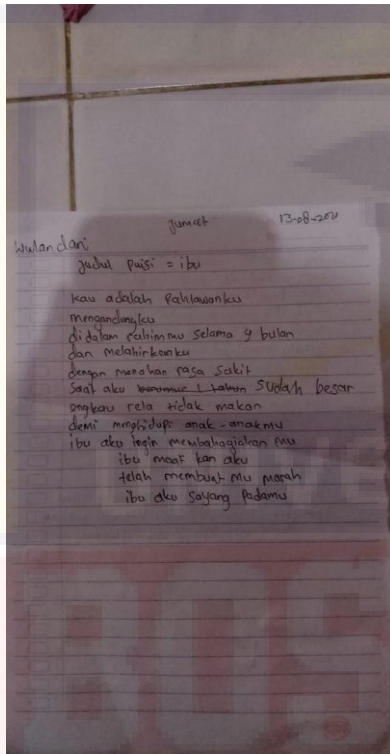 Jumat 13-08-2021
Wulandari
Judul Puisi = ibu
Kau adalah Pahlawanku
mengandungku
didalam rahimmu selama 9 bulan
dan melahirkanku
dengan menahan rasa sakit
Saat aku berumur 1 tahun sudah besar
engkau rela tidak makan
demi menghidupi anak-anakmu
ibu aku ingin membahagiakan mu
ibu maaf kan aku
telah membuat mu marah
ibu aku sayang Padamu
BOS